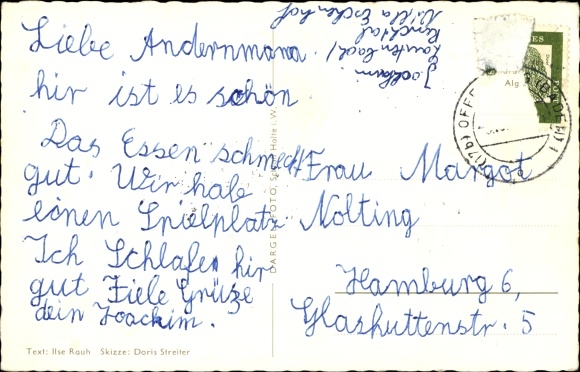 Liebe Andernmama
hir ist es schön
Das Essen schmeckt
gut. Wir habe
einen Spielplatz
Ich Schlafen hir
gut Fiele Grüße
dein Joachim.
Joachim
Lautenbach/
Renchtal
Villa Eschenhof
Frau Margot
Nolting
Hamburg 6,
Glashuttenstr. 5
DARGEN-FOTO, Holte i. W.
(17b) OFFE
Text: Ilse Rauh Skizze: Doris Streiter